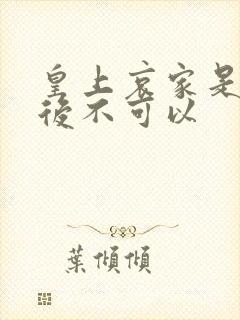 皇上哀家是
後不可以
葉傾傾